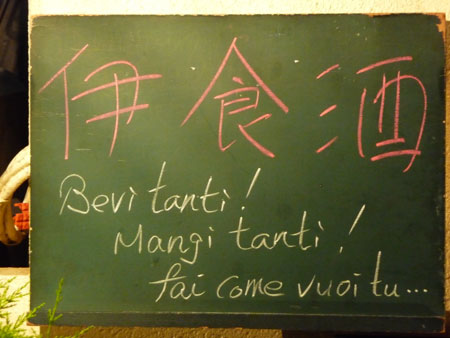 伊食酒
Bevi tanti!
Mangi tanti!
fai come vuoi tu...